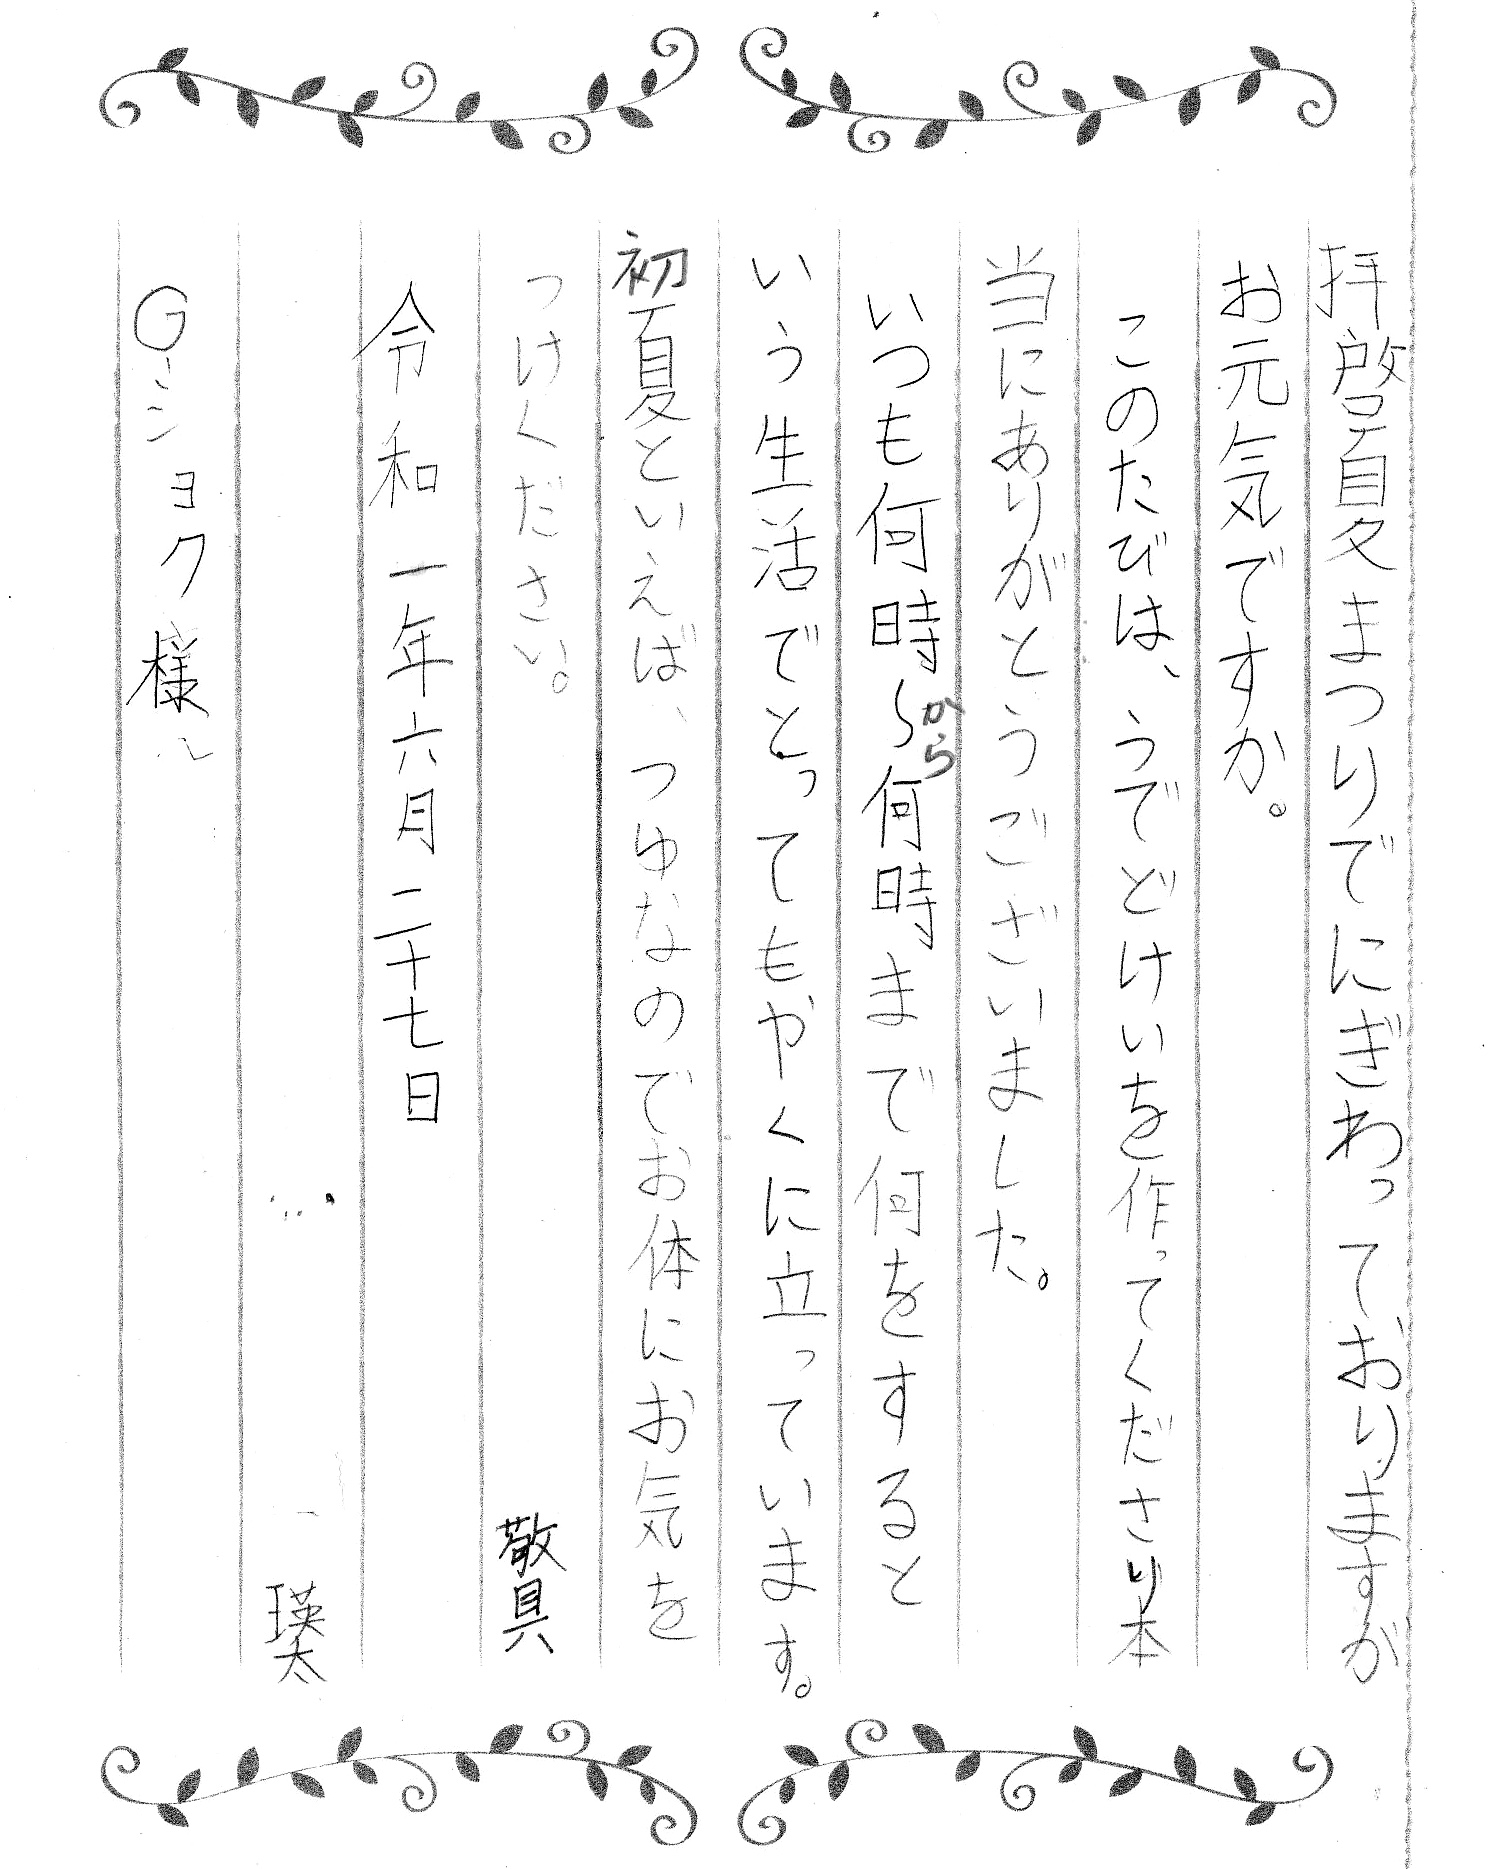 拝啓夏まつりでにぎわっておりますが
お元気ですか。
このたびは、うでどけいを作ってくださり本
当にありがとうございました。
いつも何時〜から何時まで何をすると
いう生活でとってもやくに立っています。
初夏といえば、つゆなのでお体にお気を
つけください。
敬具
令和一年六月二十七日
瑛太
G・ショク様